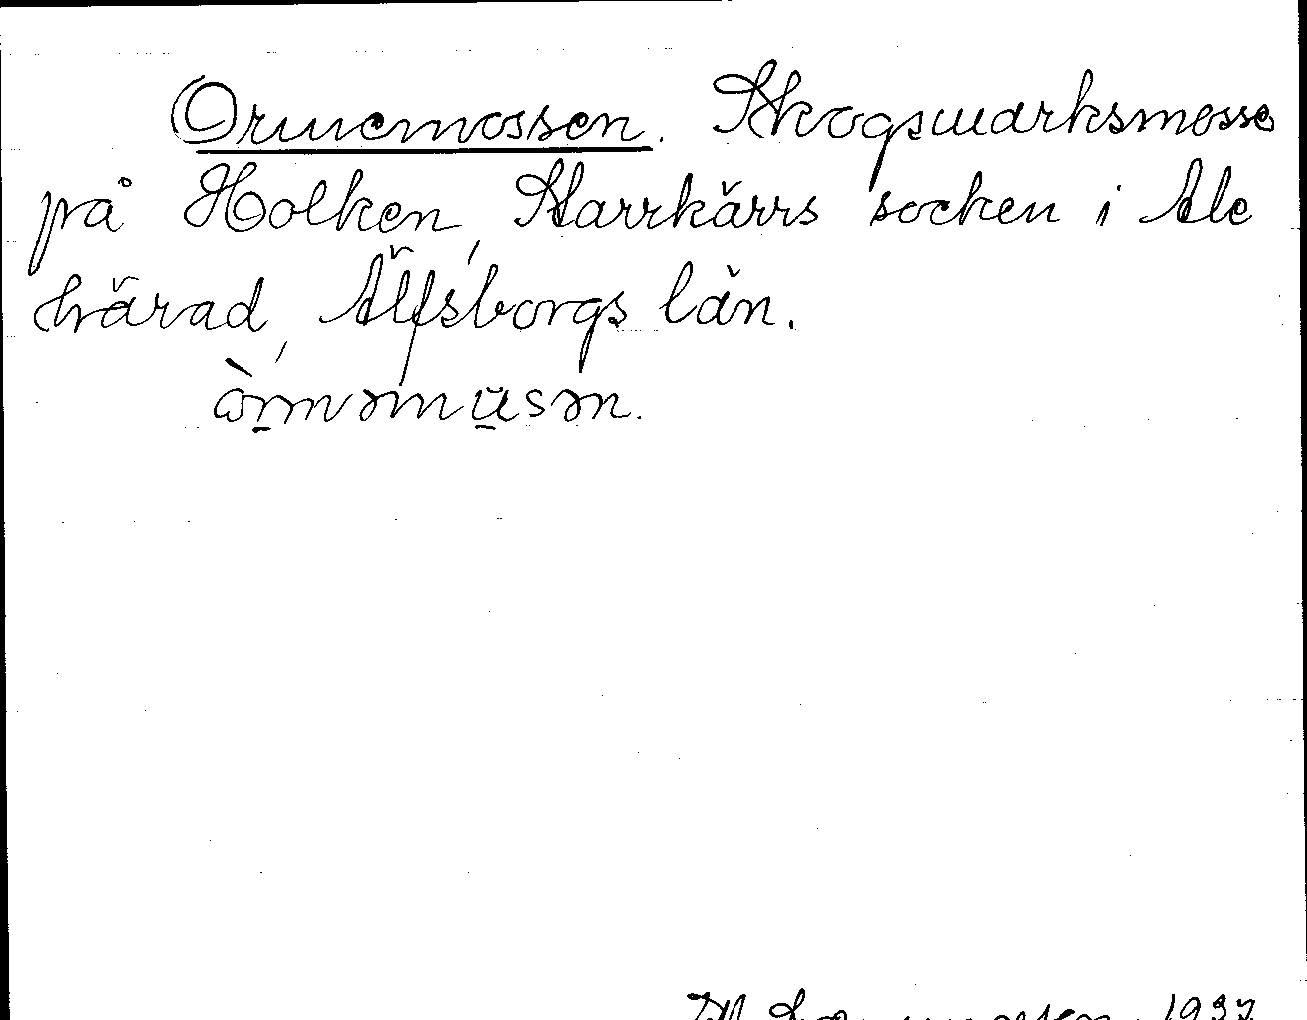 Ormemossen. Skogsmarksmosse
på Holken, Starrkärrs socken i Ale
härad, Älfsborgs län.
1937